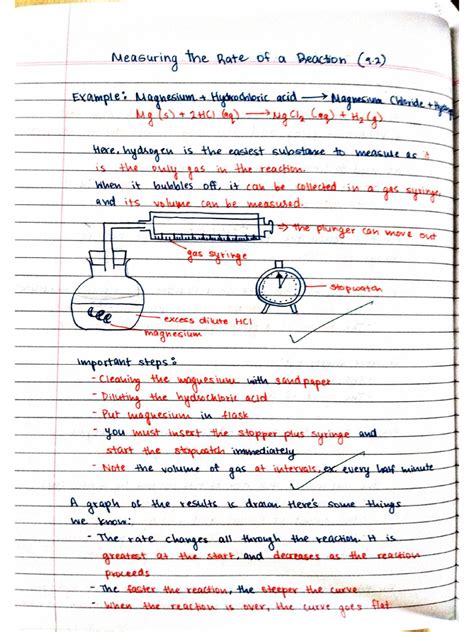 Measuring the Rate of a Reaction (9.2)
Example: Magnesium + Hydrochloric acid → Magnesium Chloride +
Mg (s) + 2HCl (aq) → MgCl2 (aq) + H2 (g)
Here, hydrogen is the easiest substance to measure as it
is the only gas in the reaction.
When it bubbles off, it can be collected in a gas syringe,
and its volume can be measured.
→ the plunger can move out
gas syringe
stopwatch
excess dilute HCl
magnesium
Important steps:
- Cleaning the magnesium with sandpaper
- Diluting the hydrochloric acid
- Put magnesium in flask
- You must insert the stopper plus syringe and
start the stopwatch immediately
- Note the volume of gas at intervals, ex every half minute
A graph of the results is drawn. Here's some things
we know:
- The rate changes all through the reaction. It is
greatest at the start, and decreases as the reaction
proceeds
- The faster the reaction, the steeper the curve
- When the reaction is over, the curve goes flat